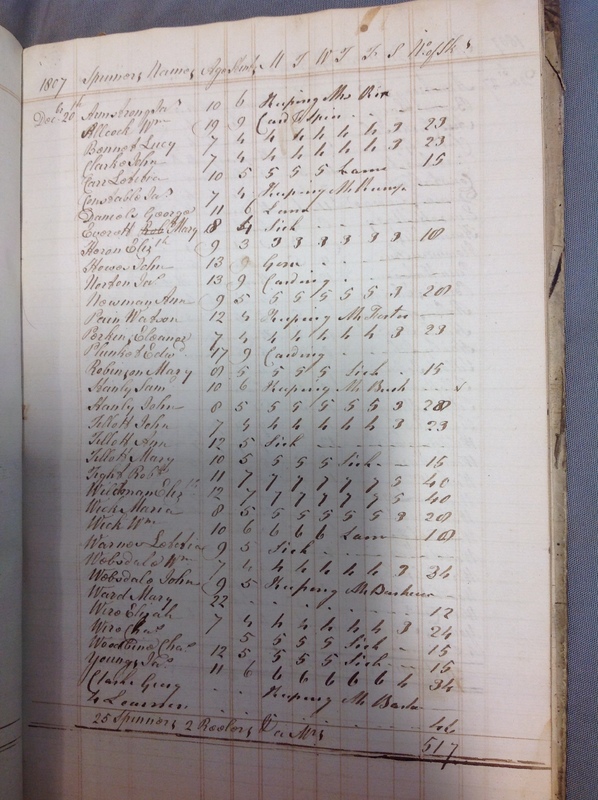 1807 Spinners Names Age M T W T F S No of Sk
Dec. 20th
Armstrong Jas 10 6 Keeping Mrs Rix
Allcock Wm 19 9 Card & Spin
Bonnet Lucy 7 4 4 4 4 4 4 3 23
Clarke John 7 4 4 4 4 4 4 3 23
Carr Letitia 10 5 5 5 5 Lame 15
Constable Jas 7 4 Keeping
Daniels George 11 6 Lame
Everett Mary 8 4 Sick
Heron Elizth 9 3 3 3 3 3 3 3 18
Howes John 13 9
Norton Jas 13 9 Carding
Newman Ann 9 5 5 5 5 5 5 3 28
Pain Watson 12 4 Keeping Mr
Perkins Eleanor 7 4 4 4 4 4 4 3 23
Plunket Edwd 17 9 Carding
Robinson Mary 8 5 5 5 5 Sick 15
Hanly Sam 10 6 Keeping Mr Bush
Hanly John 8 5 5 5 5 5 5 3 28
Tillott John 7 4 4 4 4 4 4 3 23
Tillott Ann 12 5 Sick
Tillott Mary 10 5 5 5 5 Sick 15
Tight Robt 11 7 7 7 7 7 7 5 40
Wickham Elizth 12 7 7 7 7 7 7 5 40
Wick Maria 8 5 5 5 5 5 5 3 28
Wick Wm 10 6 6 6 6 Lame 18
Warner Letitia 9 5 Sick
Websdale Wm 7 4 4 4 4 4 4
Websdale John 9 5 Keeping Mr
Ward Mary 22 12
Wire Elijah 7 4 4 4 4 4 4 3 24
Wire Chas 5 5 5 5 Sick 15
Woodbine Chas 12 5 5 5 5 Sick 15
Youngs Jas 11 6 6 6 6 6 6 4 34
Clark Keeping Mr
4 Learners
25 Spinners 2 Reelers 46
517